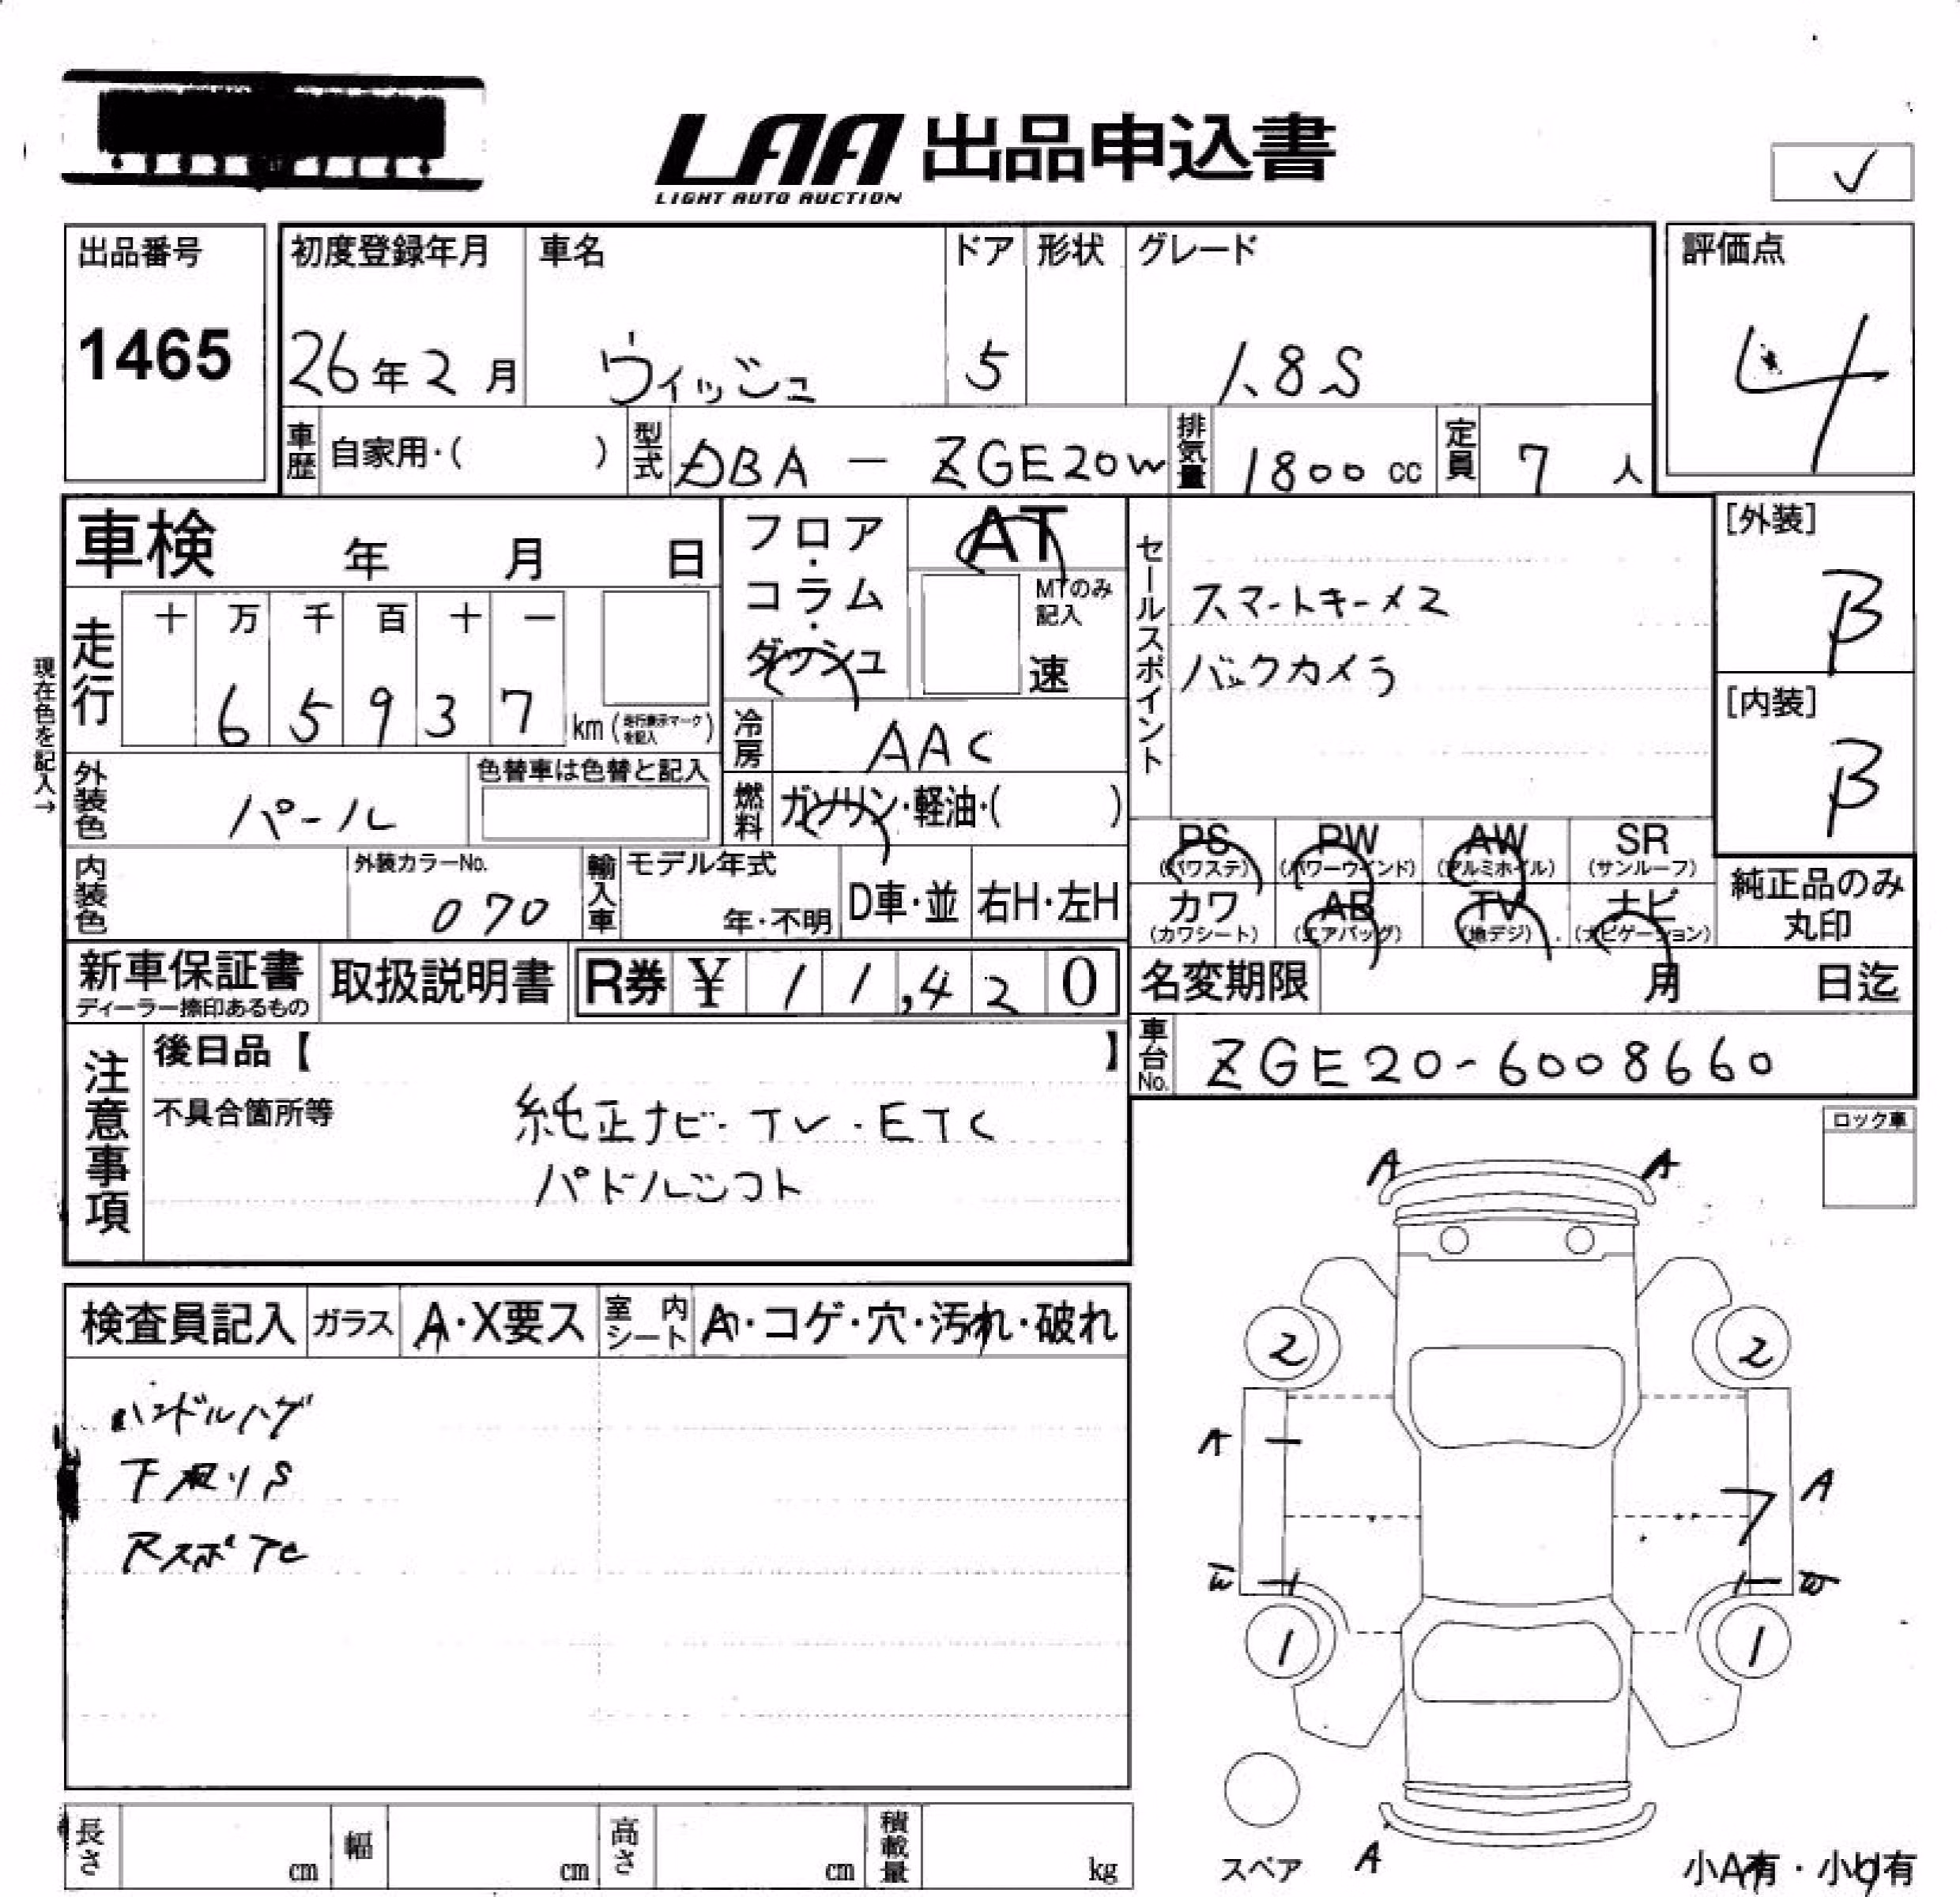 LAA 出品申込書
LIGHT AUTO AUCTION
✓
出品番号
1465
初度登録年月 車名 ドア 形状 グレード
26年2月 ウィッシュ 5 1.8S
評価点
4
車歴 自家用・( ) 型式 DBA － ZGE20W 排気量 1800 cc 定員 7 人
車検 年 月 日
フロア・コラム・ダッシュ
AT
MTのみ記入
速
セールスポイント
スマートキーメ2
バックカメラ
[外装]
B
[内装]
B
現在色を記入→
走行 十 万 千 百 十 一
6 5 9 3 7 km (走行表示マークを記入)
冷房 AAC
外装色 パール 色替車は色替と記入
燃料 ガソリン・軽油・( )
内装色 外装カラーNo. 070
輸入車 モデル年式 年・不明 D車・並 右H・左H
PS (パワステ) PW (パワーウインド) AW (アルミホイル) SR (サンルーフ)
カワ (カワシート) AB (エアバッグ) TV (地デジ) ナビ (ナビゲーション)
純正品のみ丸印
新車保証書 ディーラー捺印あるもの 取扱説明書 R券 ¥ 11,420
名変期限 月 日迄
車台No. ZGE20-6008660
注意事項
後日品【 】
不具合箇所等
純正ナビ・TV・ETC
パドルシフト
ロック車
検査員記入 ガラス A・X要ス 室内シート A・コゲ・穴・汚れ・破れ
ハンドルハゲ
下廻りS
Rスポ
A A
2 2
A
A
W W
1 1
スペア A 小A有・小U有
長さ cm 幅 cm 高さ cm 積載量 kg